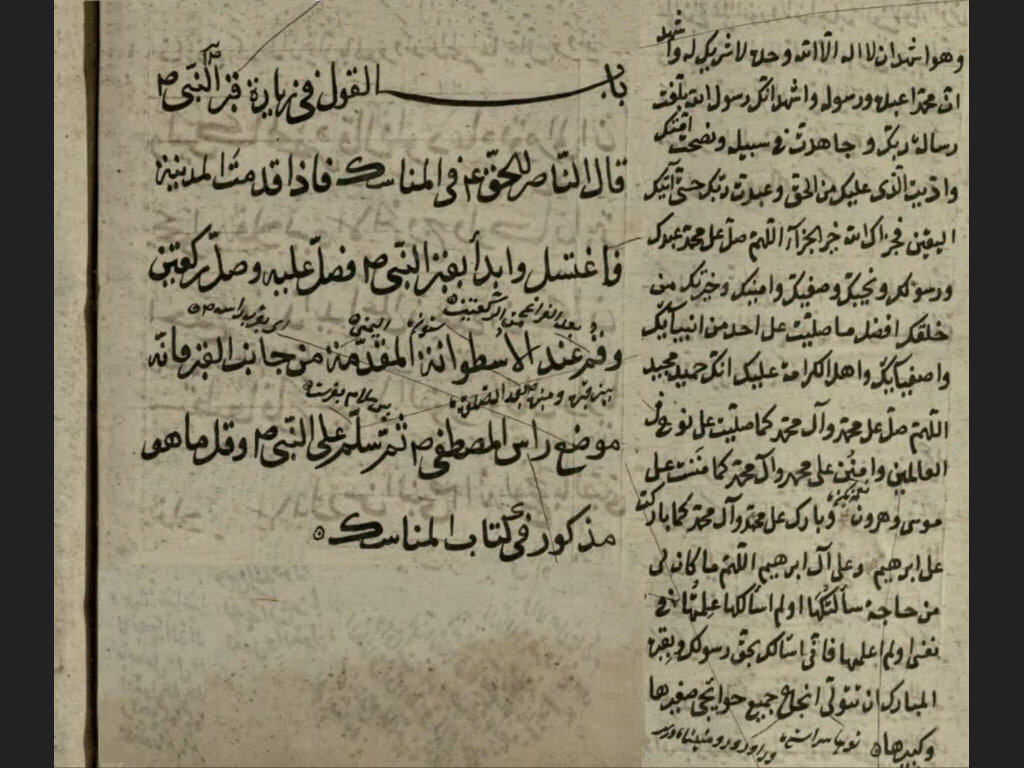 باب القول في زيارة قبر النبي ص
قال الناصر للحق ع في المناسك فاذا قدمت المدينة
فاغتسل وابدأ بقبر النبي ص فصل عليه وصل ركعتين
بعد الفراغ من الركعتين
وقم عند الأسطوانة المقدمة من جانب القبر فانه
موضع راس المصطفى ص ثم سلم على النبي ص وقل ما هو
مذكور في كتاب المناسك
وهو اشهد ان لا اله الا الله وحده لا شريك له واشهد
ان محمدا عبده ورسوله واشهد انك رسول الله بلغت
رسالة ربك وجاهدت في سبيله ونصحت امتك
واديت الذى عليك من الحق وعبدت ربك حتى اتيك
اليقين فجزاك الله خير الجزآء اللهم صل على محمد عبدك
ورسولك ونجيك وصفيك وامينك وخيرتك من
خلقك افضل ما صليت على احد من انبيآئك
واصفيآئك واهل الكرامة عليك انك حميد مجيد
اللهم صل على محمد وآل محمد كما صليت على نوح في
العالمين وامنن على محمد وآل محمد كما مننت على
موسى وهرون وبارك على محمد وآل محمد كما باركت
على ابرهيم وعلى آل ابرهيم اللهم ما كان لى
من حاجة سألتكها اولم اسألكها علمتها في
نفسى اولم اعلمها فانى اسألك بحق رسولك وبقبره
المبارك ان تتولى انجاح جميع حوايجى صغيرها
وكبيرها